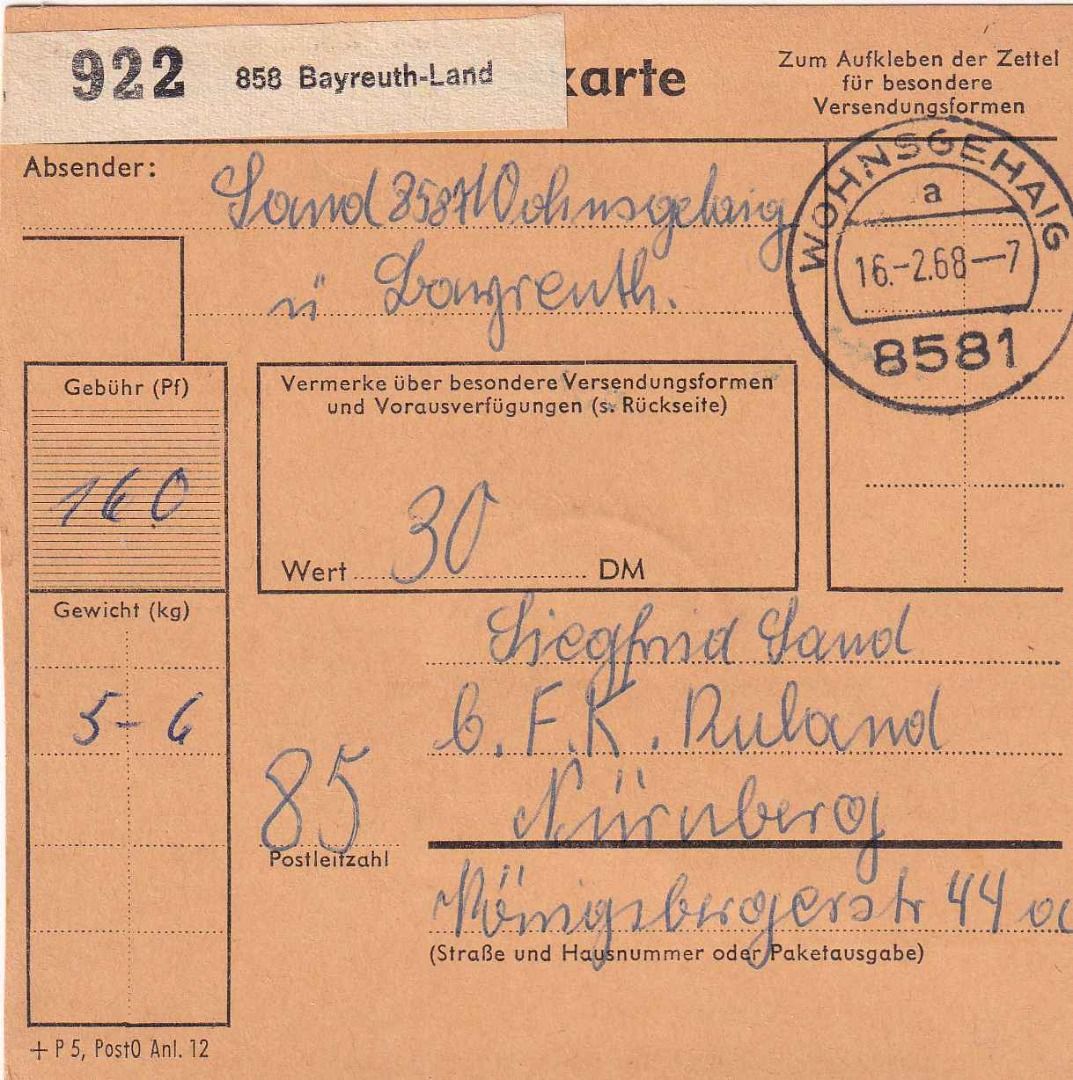 922 858 Bayreuth-Land
karte
Zum Aufkleben der Zettel
für besondere
Versendungsformen
Absender:
Sand 8581 Wohnsgehaig
ü Bayreuth.
WOHNSGEHAIG
a
16.-2.68--7
8581
Gebühr (Pf)
160
Vermerke über besondere Versendungsformen
und Vorausverfügungen (s. Rückseite)
Wert 30 DM
Gewicht (kg)
5-6
Siegfried Sand
b. F.K. Ruland
85 Nürnberg
Postleitzahl
Königsbergerstr 44 a
(Straße und Hausnummer oder Paketausgabe)
+ P 5, PostO Anl. 12